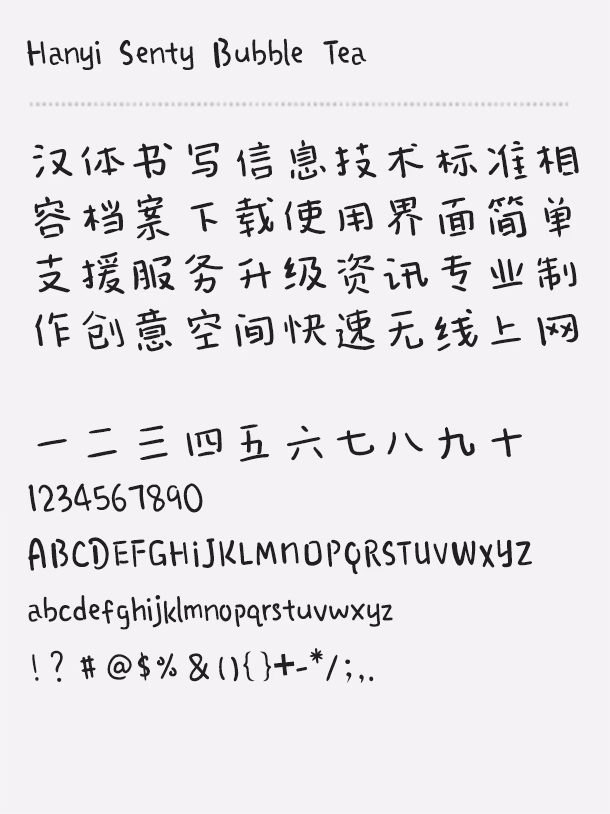 Hanyi Senty Bubble Tea
汉体书写信息技术标准相
容档案下载使用界面简单
支援服务升级资讯专业制
作创意空间快速无线上网
一二三四五六七八九十
1234567890
ABCDEFGHiJKLMnOPQRSTUVWXYZ
abcdefghijklmnopqrstuvwxyz
!?#@$%&(){}+-*/;,.